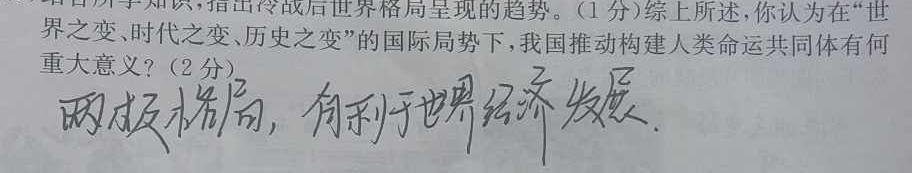 知识,指出冷战后世界格局呈现的趋势。(1分)综上所述,你认为在“世
界之变、时代之变、历史之变”的国际局势下,我国推动构建人类命运共同体有何
重大意义?(2分)
两极格局,有利于世界经济发展.